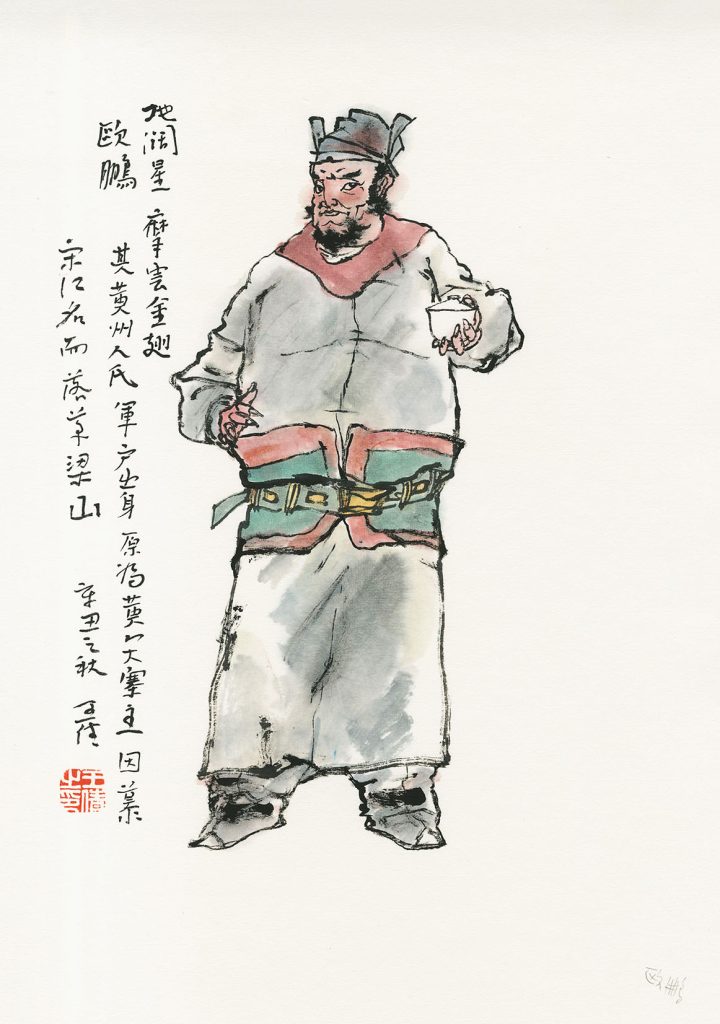 地阔星 摩雲金翅
欧鵬 其黄州人氏 軍户出身 原為黄山大寨主 因慕
宋江名而落草梁山 辛丑之秋
欧鵬